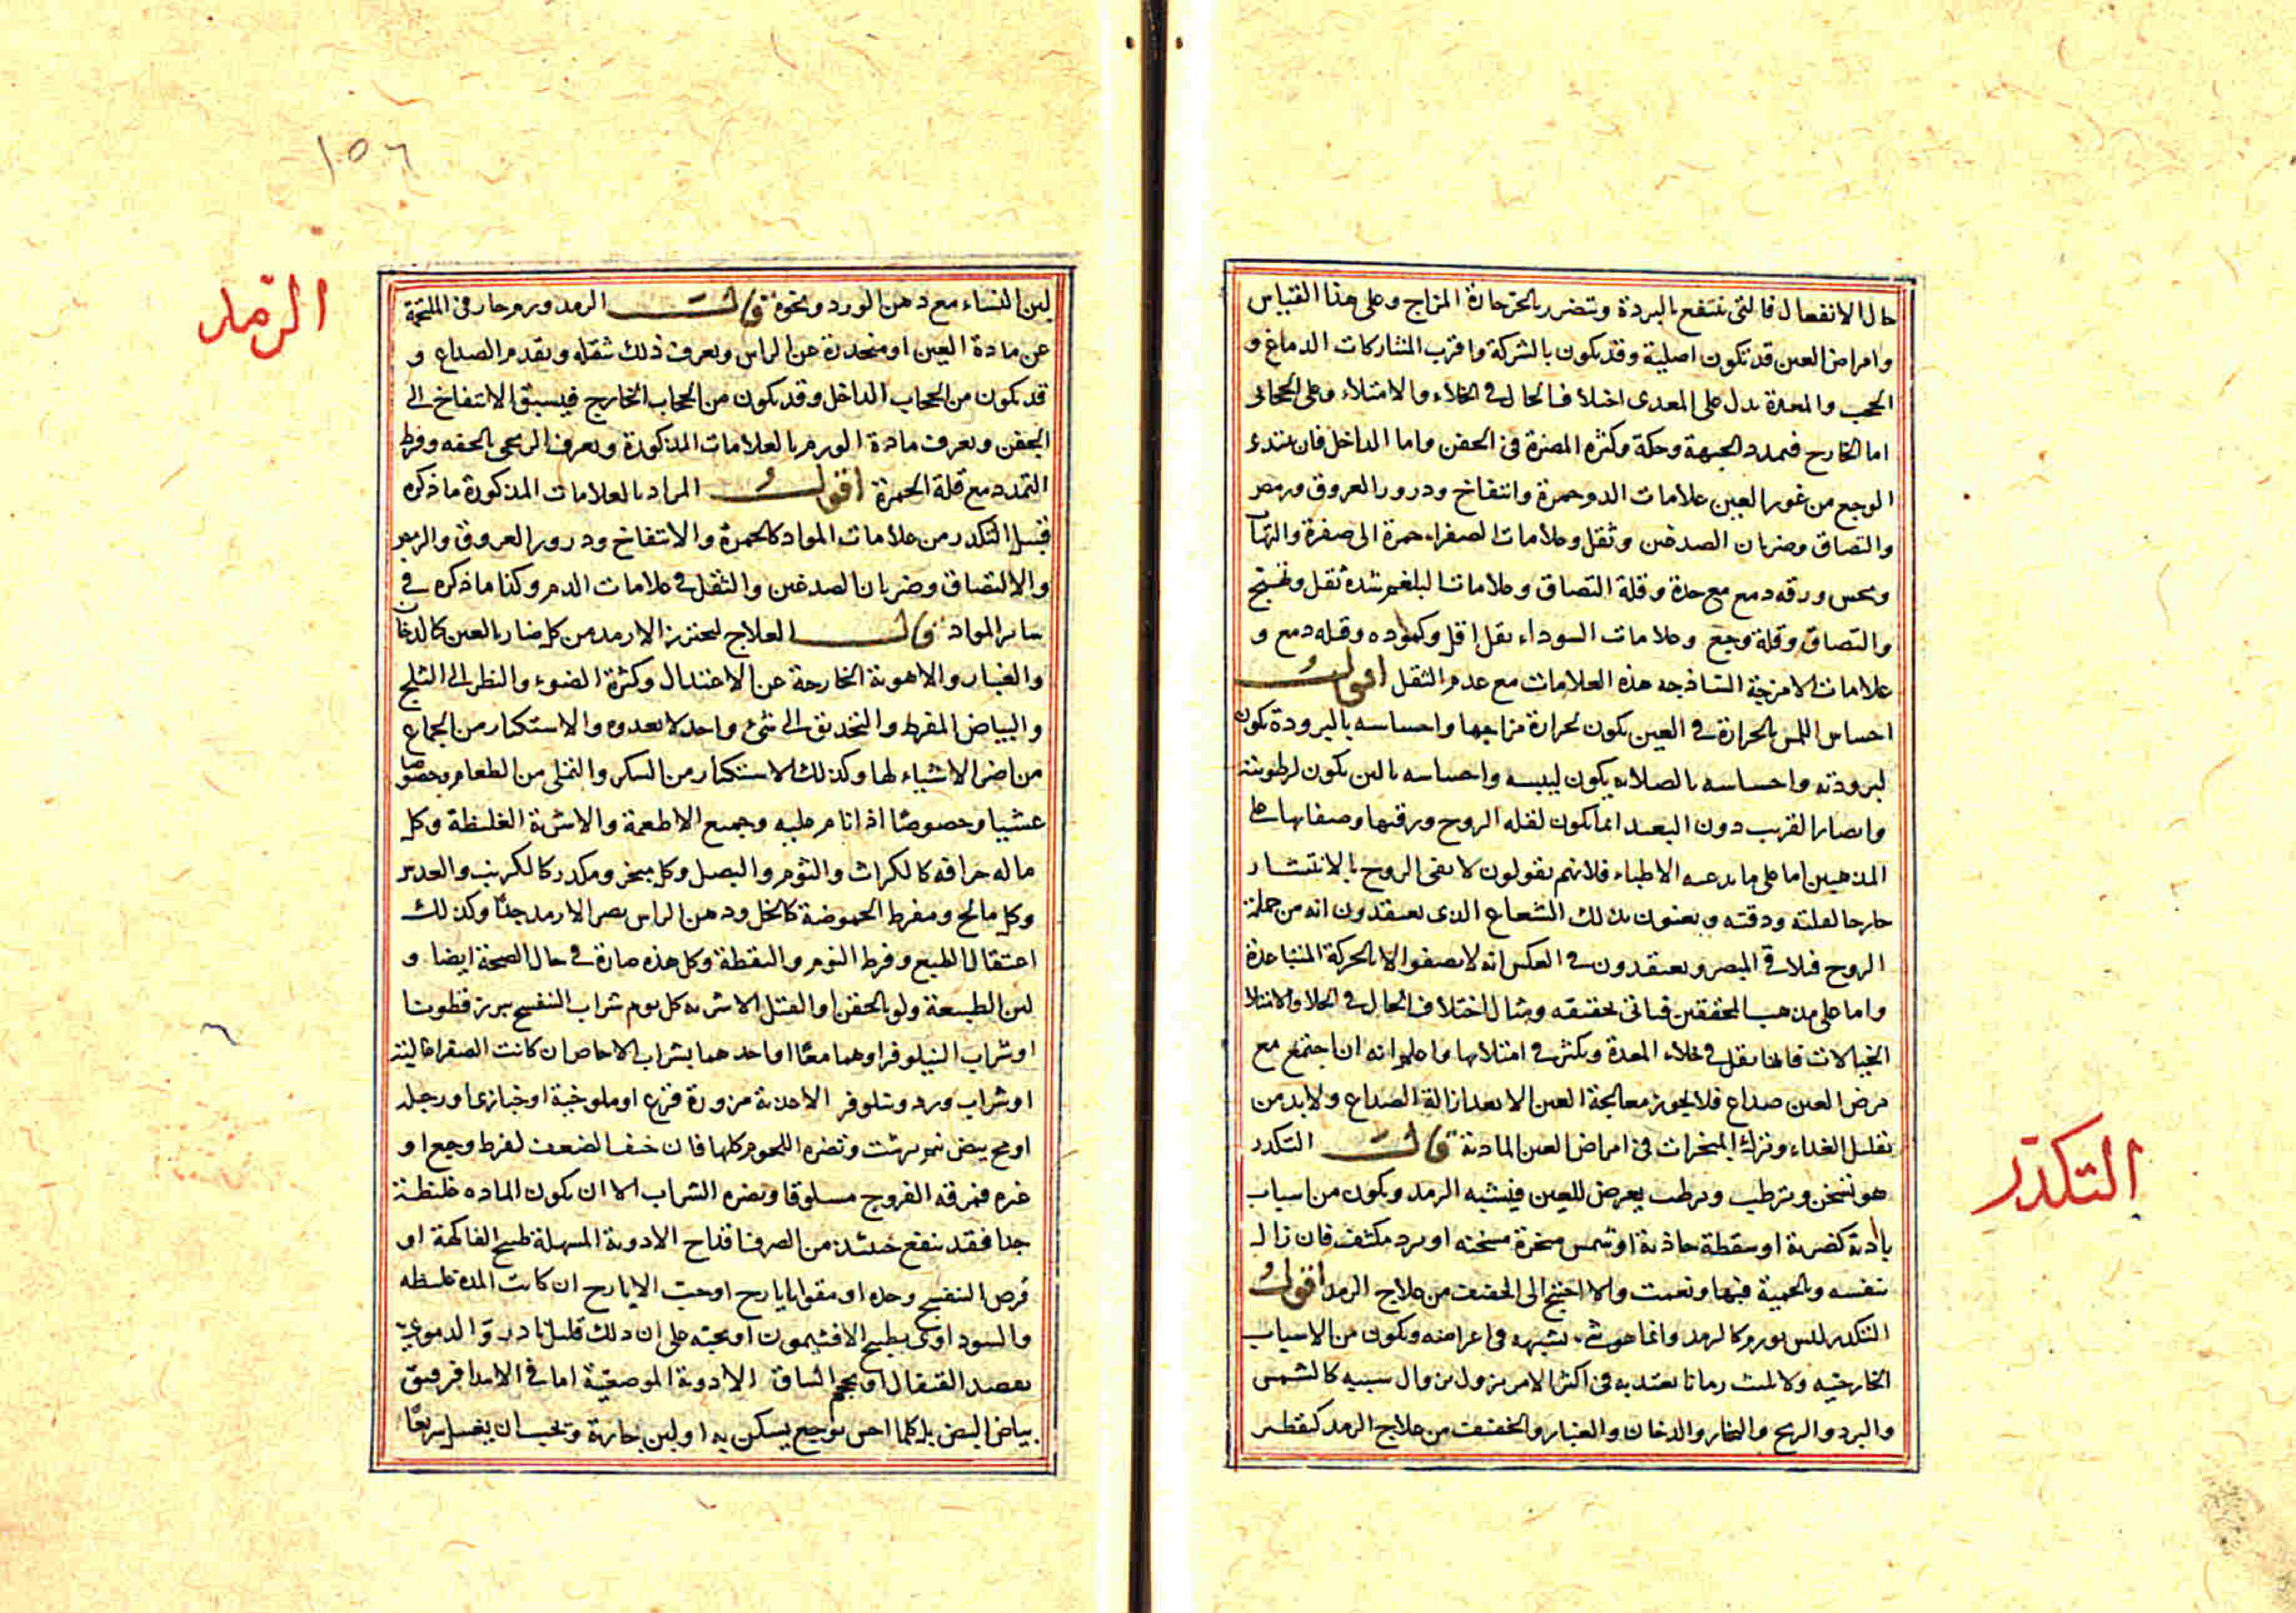 حال الانفعال فالتى تنتفع بالبردة وتتضرر بالحر حارة المزاج وعلى هذا القياس
وامراض العين قد تكون اصلية وقد تكون بالشركة واقرب المشاركات الدماغ و
الحجب والمعدة يدل على المعدى اختلاف الحال فى الخلاء والامتلاء وعلى الحجابى
اما الخارج فتمدد الجبهة وحكة وكثرة المضرة فى الجفن واما الداخل فان يبتدى
الوجع من غور العين علامات الدم حمرة وانتفاخ ودرور العروق ورمص
والتصاق وضربان الصدغين وثقل وعلامات الصفراء حمرة الى صفرة والتهاب
ونخس ورقه دمع مع حدة وقلة التصاق وعلامات البلغم شدة ثقل وتهيج
والتصاق وقلة وجع وعلامات السوداء ثقل اقل وكمودة وقلة دمع و
علامات الامزجة الساذجة هذه العلامات مع عدم الثقل اقول
احساس اللمس بالحرارة فى العين يكون لحرارة مزاجها واحساسه بالبرودة يكون
لبرودته واحساسه بالصلابه يكون ليبسه واحساسه بالين يكون لرطوبته
وابصار القريب دون البعيد انما يكون لقلة الروح ورقتها وصفائها على
المذهبين اما على ما يدعيه الاطباء فلانهم يقولون لا يفى الروح بالانتشار
خارجا لقلته ودقته ويعنون بذلك الشعاع الذى يعتقدون انه من جملة
الروح فيلاقى المبصر ويعتقدون فى العكس انه لا يصفو الا بالحركة المتباعدة
واما على مذهب المحققين فيأتى تحقيقه ومثال اختلاف الحال فى الخلا والامتلا
الخيالات فانها تقل فى خلاء المعدة وتكثر فى امتلائها واعلم انه ان اجتمع مع
مرض العين صداع فلا يجوز معالجة العين الا بعد ازالة الصداع ولابد من
تقليل الغذاء وترك المبخرات فى امراض العين المادية قال التكدر
هو تسخن وترطب يعرض للعين فيشبه الرمد ويكون من اسباب
بادية كضربة او سقطة او شمس مبخرة مسخنه او برد مكثف فان زال
بنفسه وبالحمية فبها ونعمت والا احتيج الى الخفيف من علاج الرمد اقول
التكدر ليس بورم كالرمد وانما هو شىء يشبهه فى اعراضه ويكون من الاسباب
الخارجية ولا يلبث زمانا يعتد به فى اكثر الامر يزول بزوال سببه كالشمس
والبرد والريح والبخار والدخان والغبار والخفيف من علاج الرمد كتقطير
التكدّر
لبن النساء مع دهن الورد ونحوه قال الرمد ورم حار فى الملتحمة
عن مادة العين او منحدرة عن الراس ويعرف ذلك بثقله وتقدم الصداع و
قد يكون من الحجاب الداخل وقد يكون من الحجاب الخارج فيسبق الانتفاخ الى
الجفن ويعرف مادة الورم بالعلامات المذكورة ويعرف الريحى بالخفه وفرط
التمدد مع قلة الحمرة اقول المراد بالعلامات المذكورة ما ذكره
قبيل التكدر من علامات المواد كالحمرة والانتفاخ ودرور العروق والرمص
والالتصاق وضربان الصدغين والثقل فى علامات الدم وكذا ما ذكره فى
سائر المواد قال العلاج ليحترز الارمد من كل ضار بالعين كالدخان
والغبار والاهوية الخارجة عن الاعتدال وكثرة الضوء والنظر الى الثلج
والبياض المفرط والتحديق الى شىء واحد لا يعدوه والاستكثار من الجماع
من اضر الاشياء لها وكذلك الاستكثار من السكر والتملى من الطعام وخصوصا
عشيا وخصوصًا اذا نام عليه وجميع الاطعمة والاشربة الغليظة وكل
ما له حرافة كالكراث والثوم والبصل وكل مبخر ومكدر كالكرنب والعدس
وكل مالح ومفرط الحموضة كالخل ودهن الراس يضر الارمد جدًا وكذلك
اعتقال الطبع وفرط النوم واليقظة وكل هذه ضارة فى حال الصحة ايضا و
لين الطبيعة ولو بالحقن او الفتل الاشربه كل يوم شراب البنفسج ببزر قطونا
او شراب النيلوفر او هما معًا او احدهما بشراب الاجاص ان كانت الصفراء غالبة
او شراب ورد ونيلوفر الاغذية مزورة قرع او ملوخية او خبازى او رجله
او مح بيض نمبرشت وتضره اللحوم كلها فان خيف الضعف لفرط وجع او
غيره فمرقه الفروج مسلوقا ويضره الشراب الا ان يكون الماده غليظة
جدا فقد ينفع حينئذ من الصرف اقداح الادوية المسهلة طبيخ الفاكهة او
قرص البنفسج وحده او مقوا بايارج او حب الايارج ان كانت المدة غليظه
والسوداوى بطبيخ الافتيمون او بحبه على ان ذلك قليل نادر والدموى
بفصد القيفال او بحجم الساق الادوية الموضعية اما فى الابتدا فرقيق
بياض البيض بل كلما احس بوجع يسكن به او لبن جارية ويجب ان يغسل سريعًا
الرّمد
١٥٦